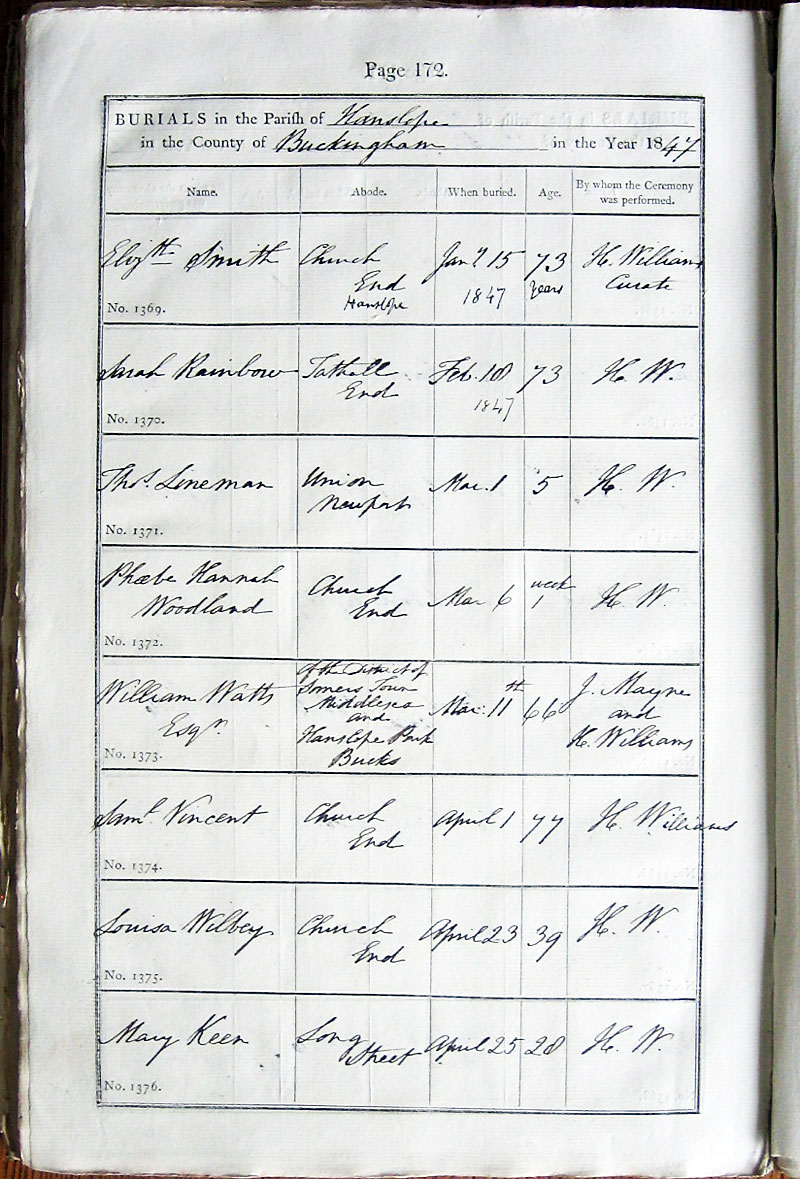 Page 172.
BURIALS in the Parish of Hanslope
in the County of Buckingham in the Year 1847
Name. Abode. When buried. Age. By whom the Ceremony was performed.
Elizth Smith Church End Hanslope Jany 15 1847 73 years H. Williams Curate
No. 1369.
Sarah Rainbow Tathall End Feb. 18 1847 73 H. W.
No. 1370.
Thos. Lineman Union Newport Mar. 1 5 H. W.
No. 1371.
Phœbe Hannah Woodland Church End Mar 6 week 1 H. W.
No. 1372.
William Watts Esqr. of the District of Somers Town Middlesex and Hanslope Park Bucks Mar. 11th 66 J. Mayne and H. Williams
No. 1373.
Saml. Vincent Church End April 1 77 H. Williams
No. 1374.
Louisa Wilbey Church End April 23 39 H. W.
No. 1375.
Mary Keen Long Street April 25 28 H. W.
No. 1376.